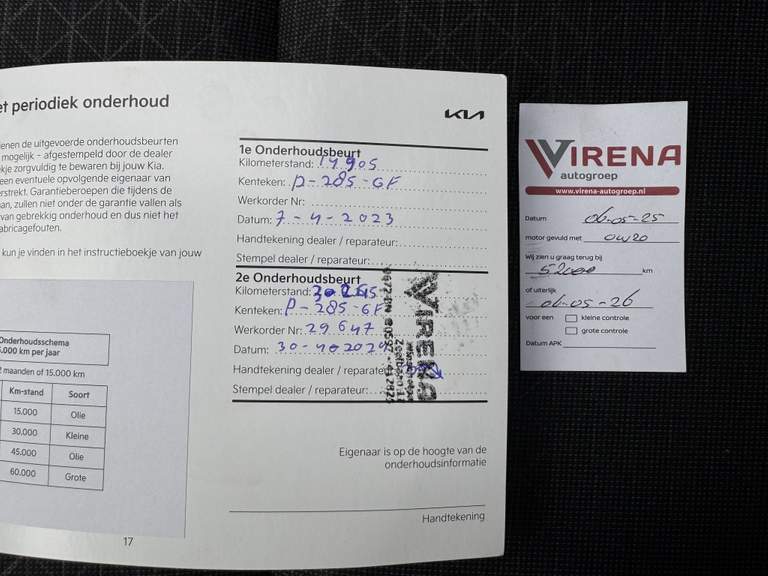 et periodiek onderhoud
enen de uitgevoerde onderhoudsbeurten
mogelijk – afgestempeld door de dealer
kje zorgvuldig te bewaren bij jouw Kia.
een eventuele opvolgende eigenaar van
erstrekt. Garantieberoepen die tijdens de
an, zullen niet onder de garantie vallen als
van gebrekkig onderhoud en dus niet het
abricagefouten.
kun je vinden in het instructieboekje van jouw
Onderhoudsschema
5.000 km per jaar
2 maanden of 15.000 km
Km-stand Soort
15.000 Olie
30.000 Kleine
45.000 Olie
60.000 Grote
17
KIA
1e Onderhoudsbeurt
Kilometerstand: 14905
Kenteken: P-285-GF
Werkorder Nr:
Datum: 7-4-2023
Handtekening dealer / reparateur:
Stempel dealer / reparateur:
2e Onderhoudsbeurt
Kilometerstand:
Kenteken: P-285-GF
Werkorder Nr: 29647
Datum: 30-4-2024
Handtekening dealer / reparateur
Stempel dealer / reparateur:
VIRENA
Eigenaar is op de hoogte van de
onderhoudsinformatie
Handtekening
VIRENA
autogroep
www.virena-autogroep.nl
Datum 06-05-25
motor gevuld met 0W20
Wij zien u graag terug bij
52000 km
of uiterlijk
06-05-26
voor een kleine controle
grote controle
Datum APK